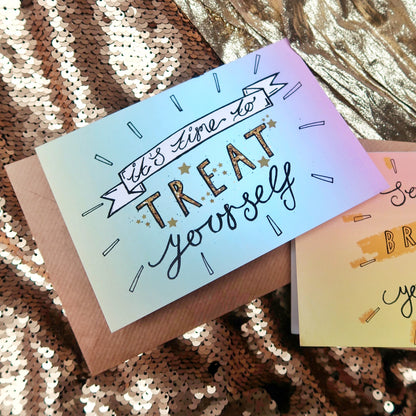 it's time to
TREAT
yourself
Se
BR
ye